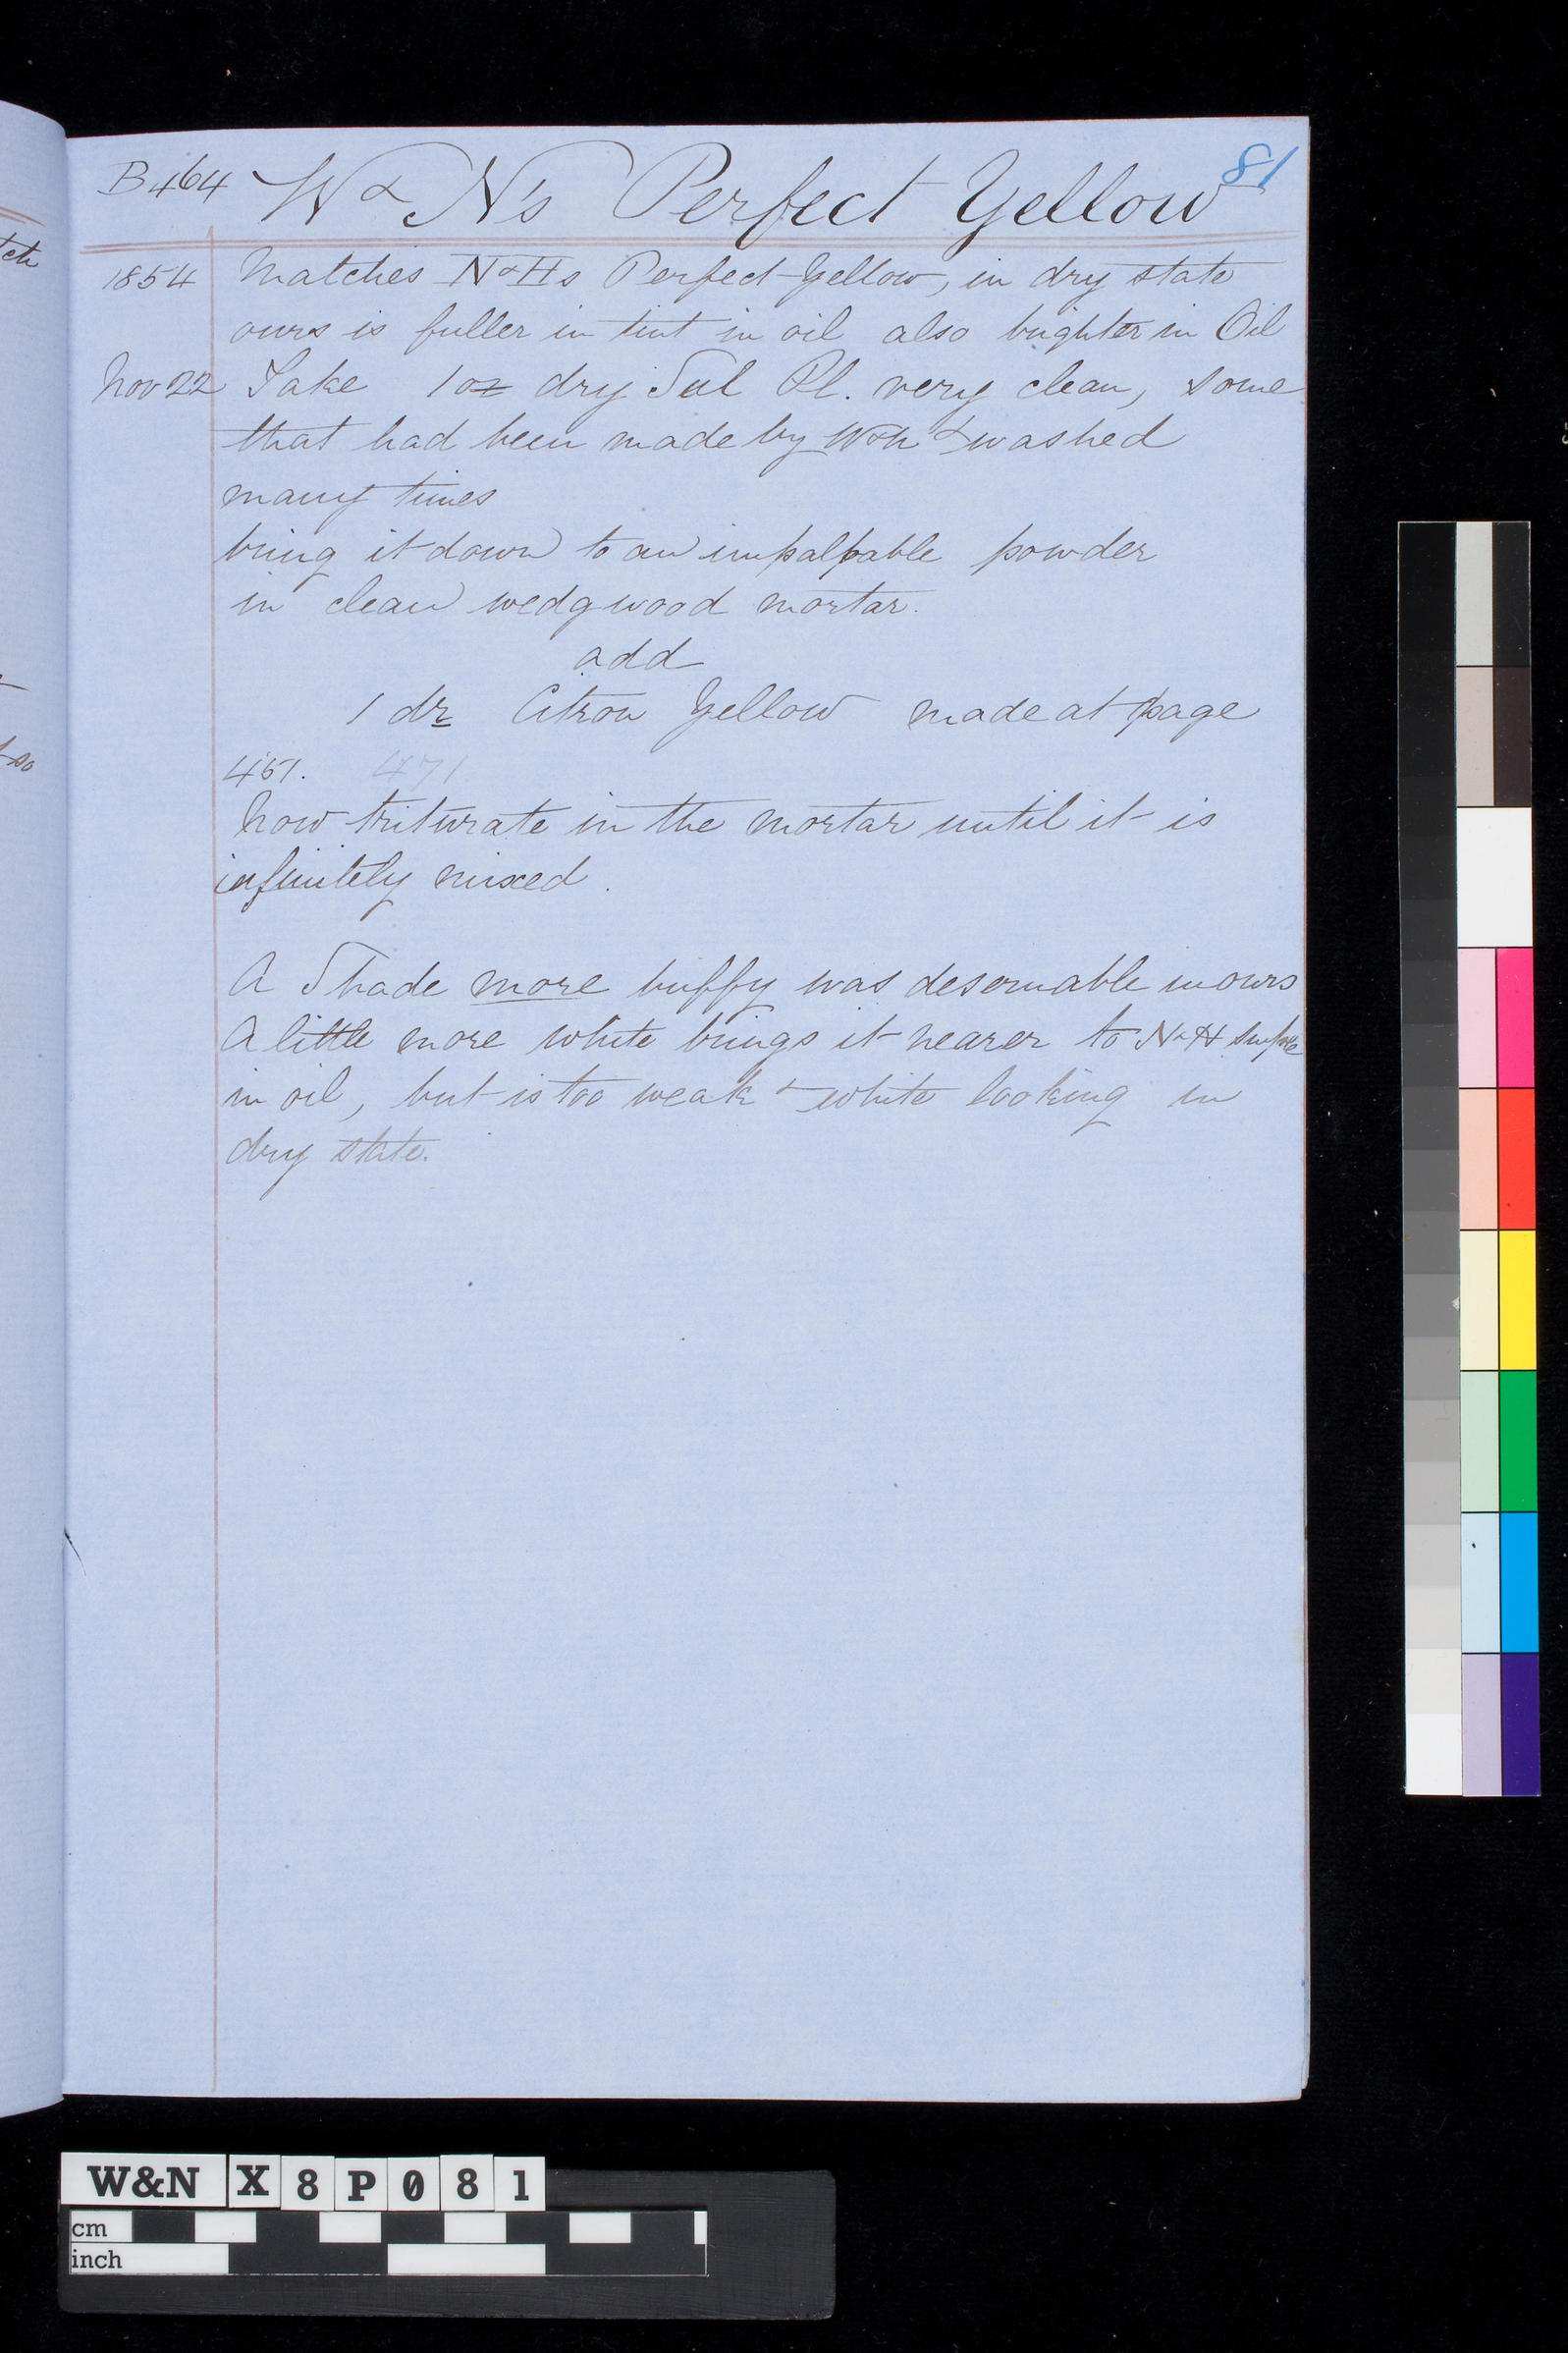 81
B464 W & N's Perfect Yellow
1854 Matches N & Hs Perfect Yellow, in dry state
ours is fuller in tint in oil also brighter in Oil
Nov 22 Take 1 oz dry Sul Pl. very clean, some
that had been made by W&N & washed
many times
bring it down to an impalpable powder
in clean wedgwood mortar.
add
1 dr Citron Yellow made at page
451. 471
Now triturate in the mortar until it is
infinitely mixed.
A Shade more buffy was desernable in ours
A little more white brings it nearer to N & H
in oil, but is too weak & white looking in
dry state.
W&N X8P081
cm
inch